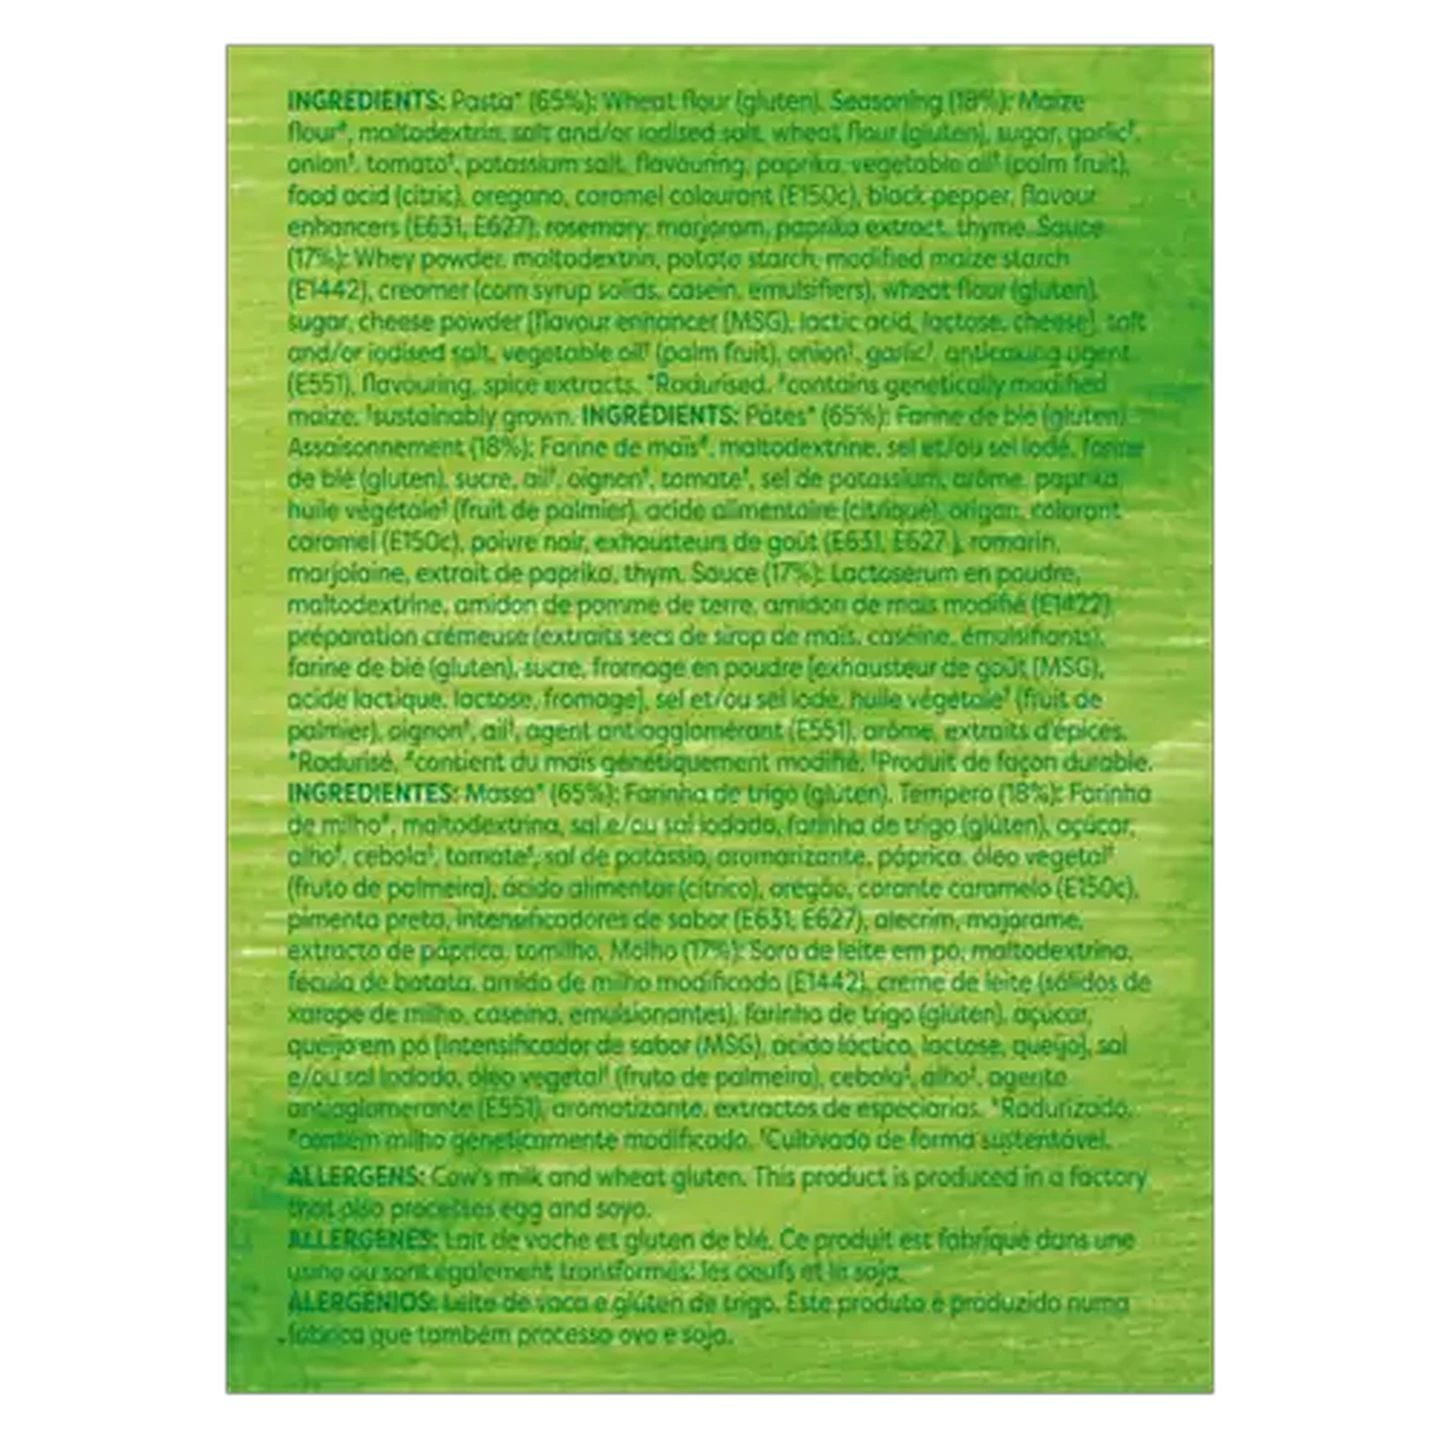 INGREDIENTS: Pasta* (65%): Wheat flour (gluten). Seasoning (18%): Maize
flour#, maltodextrin, salt and/or iodised salt, wheat flour (gluten), sugar, garlic†,
onion†, tomato†, potassium salt, flavouring, paprika, vegetable oil† (palm fruit),
food acid (citric), oregano, caramel colourant (E150c), black pepper, flavour
enhancers (E631, E627), rosemary, marjoram, paprika extract, thyme. Sauce
(17%): Whey powder, maltodextrin, potato starch, modified maize starch
(E1442), creamer (corn syrup solids, casein, emulsifiers), wheat flour (gluten),
sugar, cheese powder [flavour enhancer (MSG), lactic acid, lactose, cheese], salt
and/or iodised salt, vegetable oil† (palm fruit), onion†, garlic†, anticaking agent
(E551), flavouring, spice extracts. *Radurised. #contains genetically modified
maize. †sustainably grown. INGRÉDIENTS: Pâtes* (65%): Farine de blé (gluten).
Assaisonnement (18%): Farine de maïs#, maltodextrine, sel et/ou sel iodé, farine
de blé (gluten), sucre, ail†, oignon†, tomate†, sel de potassium, arôme, paprika,
huile végétale† (fruit de palmier), acide alimentaire (citrique), origan, colorant
caramel (E150c), poivre noir, exhausteurs de goût (E631, E627 ), romarin,
marjolaine, extrait de paprika, thym. Sauce (17%): Lactosérum en poudre,
maltodextrine, amidon de pomme de terre, amidon de maïs modifié (E1422),
préparation crémeuse (extraits secs de sirop de maïs, caséine, émulsifiants),
farine de blé (gluten), sucre, fromage en poudre [exhausteur de goût (MSG),
acide lactique, lactose, fromage], sel et/ou sel iodé, huile végétale† (fruit de
palmier), oignon†, ail†, agent antiagglomérant (E551), arôme, extraits d'épices.
*Radurisé. #contient du maïs génétiquement modifié. †Produit de façon durable.
INGREDIENTES: Massa* (65%): Farinha de trigo (glúten). Tempero (18%): Farinha
de milho#, maltodextrina, sal e/ou sal iodado, farinha de trigo (glúten), açúcar,
alho†, cebola†, tomate†, sal de potássio, aromarizante, páprica, óleo vegetal†
(fruto de palmeira), ácido alimentar (cítrico), oregão, corante caramelo (E150c),
pimenta preta, intensificadores de sabor (E631, E627), alecrim, majorame,
extracto de páprica, tomilho. Molho (17%): Soro de leite em pó, maltodextrina,
fécula de batata, amido de milho modificado (E1442), creme de leite (sólidos de
xarope de milho, caseína, emulsionantes), farinha de trigo (glúten), açúcar,
queijo em pó [intensificador de sabor (MSG), ácido láctico, lactose, queijo], sal
e/ou sal iodado, óleo vegetal† (fruto de palmeira), cebola†, alho†, agente
antiaglomerante (E551), aromatizante, extractos de especiarias. *Radurizado.
#contém milho geneticamente modificado. †Cultivado de forma sustentável.
ALLERGENS: Cow's milk and wheat gluten. This product is produced in a factory
that also processes egg and soya.
ALLERGÈNES: Lait de vache et gluten de blé. Ce produit est fabriqué dans une
usine où sont également transformés: les oeufs et le soja.
ALERGÉNIOS: Leite de vaca e glúten de trigo. Este produto é produzido numa
fábrica que também processa ovo e soja.